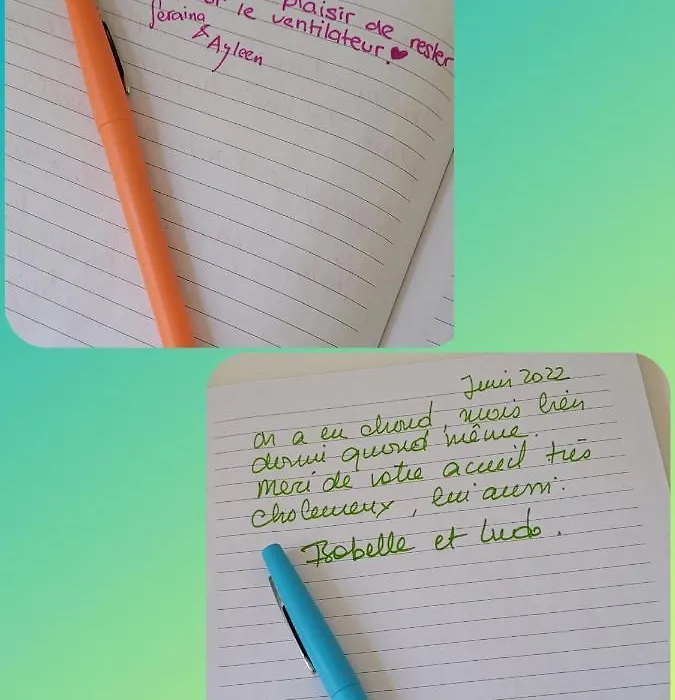 plaisir de rester
le ventilateur. ♥
Seraina
& Ayleen
Juin 2022
On a eu chaud, mais bien
dormi quand même.
Merci de votre accueil très
chaleureux, lui aussi.
Isabelle et Ludo.